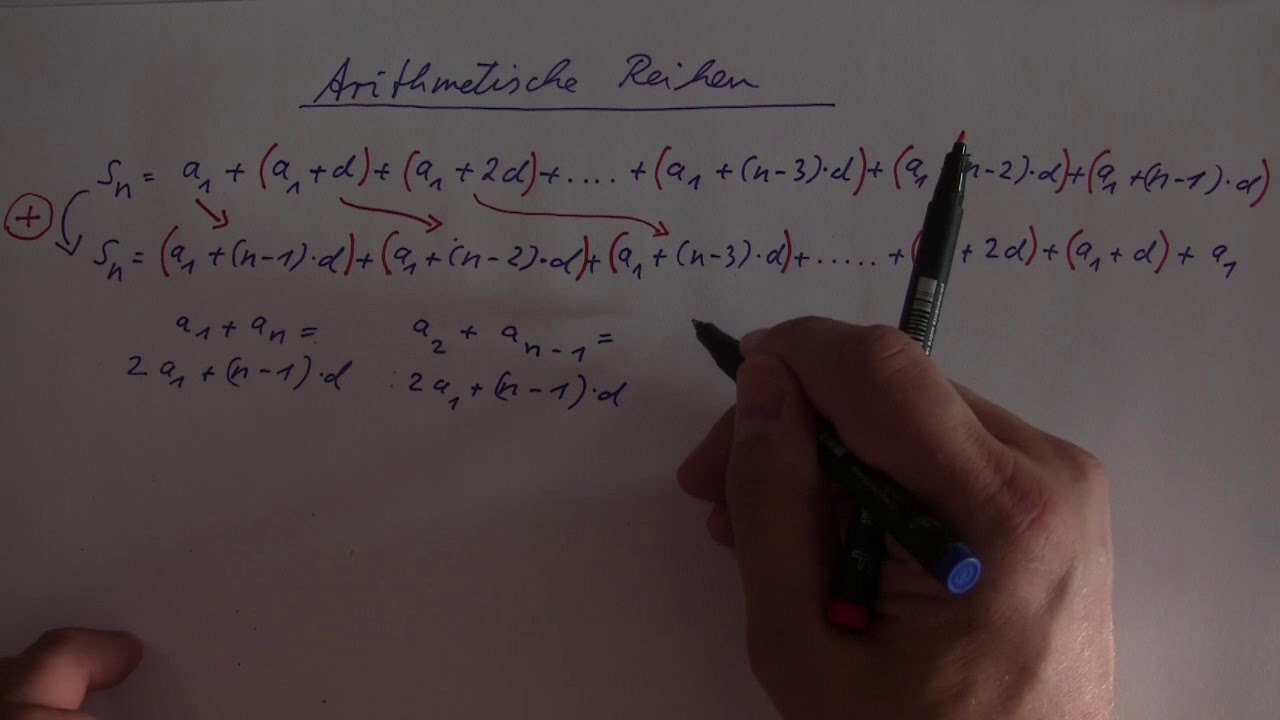 Arithmetische Reihen
Sn = a1 + (a1 + d) + (a1 + 2d) + .... + (a1 + (n-3)·d) + (a1 n-2)·d) + (a1 + (n-1)·d)
+
Sn = (a1 + (n-1)·d) + (a1 + (n-2)·d) + (a1 + (n-3)·d) + ..... + ( + 2d) + (a1 + d) + a1
a1 + an = a2 + an-1 =
2a1 + (n-1)·d 2a1 + (n-1)·d